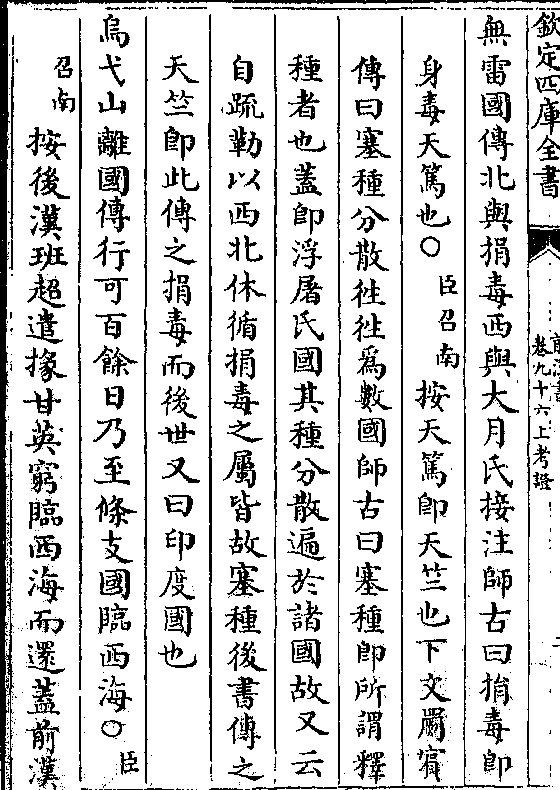 欽定四庫全書
卷九十六上考證
無雷國傳北與捐毒西與大月氏接注師古曰捐毒即
身毒天篤也○臣召南按天篤即天竺也下文罽賓
傳曰塞種分散徃徃爲數國師古曰塞種即所謂釋
種者也蓋即浮屠氏國其種分散遍於諸國故又云
自疏勒以西北休循捐毒之屬皆故塞種後書傳之
天竺即此傳之捐毒而後世又曰印度國也
烏弋山離國傳行可百餘日乃至條支國臨西海○臣
召南按後漢班超遣掾甘英窮臨西海而還蓋前漢